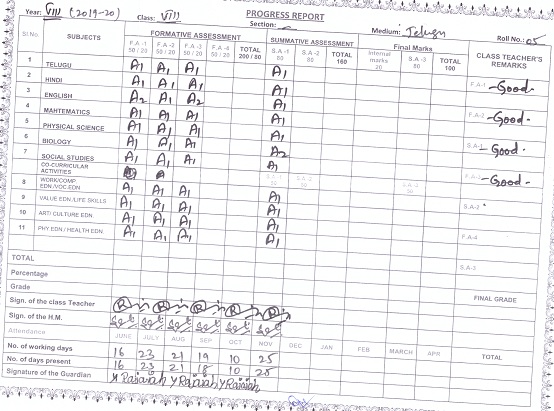 PROGRESS REPORT
Year: VIII (2019-20) Class: VIII Section: Medium: Telugu Roll No.: 05
Sl.No. SUBJECTS FORMATIVE ASSESSMENT SUMMATIVE ASSESSMENT Final Marks CLASS TEACHER'S REMARKS
F.A -1 50 / 20 F.A -2 50 / 20 F.A -3 50 / 20 F.A -4 50 / 20 TOTAL 200 / 80 S.A -1 80 S.A -2 80 TOTAL 160 Internal marks 20 S.A -3 80 TOTAL 100
1 TELUGU A1 A1 A1 A1 F.A-1 - Good -
2 HINDI A1 A1 A1 A1
3 ENGLISH A2 A1 A2 A1 F.A-2 - Good -
4 MAHTEMATICS A1 A1 A1 A1
5 PHYSICAL SCIENCE A1 A1 A1 A1 S.A-1 - Good -
6 BIOLOGY A1 A1 A1 A2
7 SOCIAL STUDIES A1 A1 A1 A1 F.A-3 - Good -
CO-CURRICULAR ACTIVITIES S.A -1 50 S.A -2 50 S.A -3 50
8 WORK/COMP. EDN./VOC.EDN A1 A1 A1 A1 S.A-2
9 VALUE EDN./LIFE SKILLS A1 A1 A1 A1
10 ART/ CULTURE EDN. A1 A1 A1 A1 F.A-4
11 PHY.EDN./ HEALTH EDN. A1 A1 A1 A1
TOTAL S.A-3
Percentage
Grade FINAL GRADE
Sign. of the class Teacher
Sign. of the H.M.
Attendance JUNE JULY AUG SEP OCT NOV DEC JAN FEB MARCH APR TOTAL
No. of working days 16 23 21 19 10 25
No. of days present 16 23 21 18 10 25
Signature of the Guardian Y Rajaiah Y Rajaiah Y Rajaiah